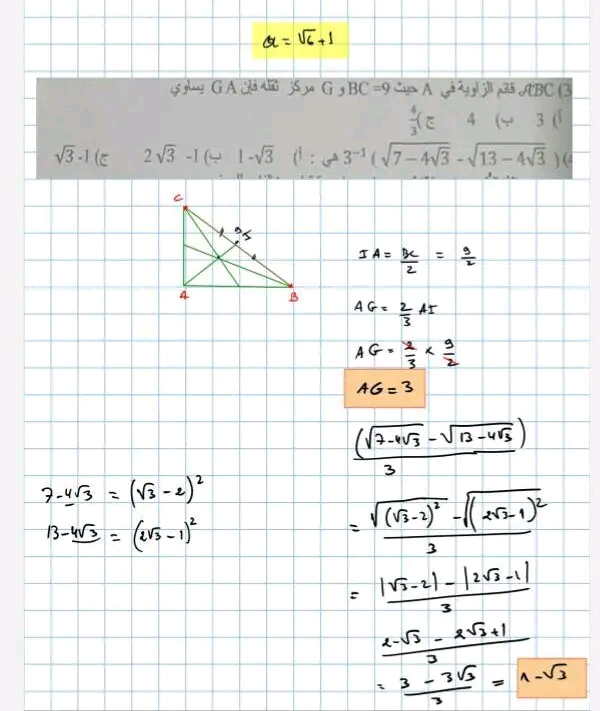 a = √6 + 1
3) ABC قائم الزاوية في A حيث BC = 9 و G مركز ثقله فإن GA يساوي
أ) 3 ب) 4 ج) 4/3
3⁻¹(√(7 − 4√3) − √(13 − 4√3)) هي : أ) 1 − √3 ب) 1 − 2√3 ج) 1 − √3
C
A
B
IA = BC/2 = 9/2
AG = 2/3 AI
AG = 2/3 × 9/2
AG = 3
(√(7 − 4√3) − √(13 − 4√3))/3
7 − 4√3 = (√3 − 2)²
13 − 4√3 = (2√3 − 1)²
= (√((√3 − 2)²) − √((2√3 − 1)²))/3
= (|√3 − 2| − |2√3 − 1|)/3
(2 − √3 − 2√3 + 1)/3
= (3 − 3√3)/3 = 1 − √3